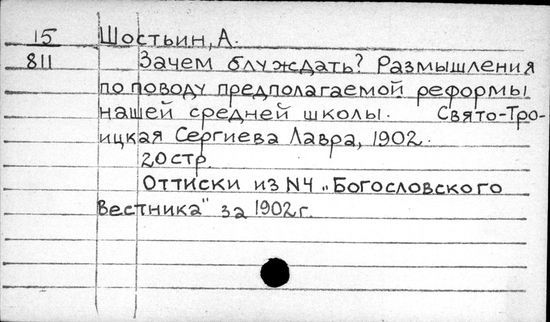 15 Шостьин, А.
811 Зачем блуждать? Размышления
по поводу предполагаемой реформы
нашей средней школы. Свято-Тро-
ицкая Сергиева Лавра, 1902.
20 стр.
Оттиски из N4 „Богословского
Вестника" за 1902 г.